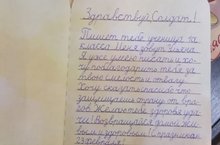 Здравствуй Солдат!
Пишет тебе ученица 1а
класса Меня зовут
Я уже умею писать и хо-
чу поблагодарить тебя за
твою смелость и отвагу.
Хочу сказать спасибо что
защищаешь страну от вра-
гов Желаю тебе здоровья уда-
чи! Возвращайся домой жи-
вым и здоровым! С праздником
23 февраля!